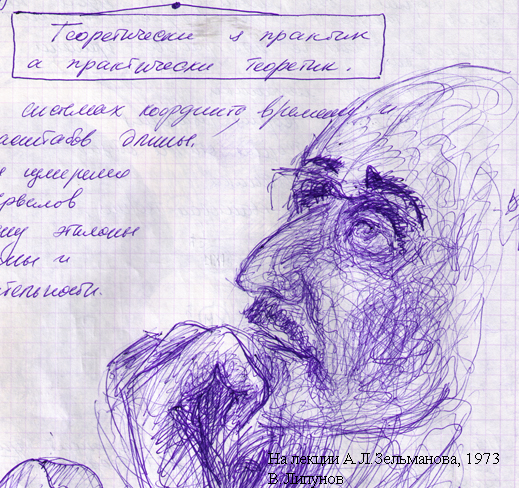 Теоретически я практик
а практически теоретик.
системах координат, времени и
масштабов длины.
измерено
эталоны
и
На лекции А.Л.Зельманова, 1973
В.Липунов